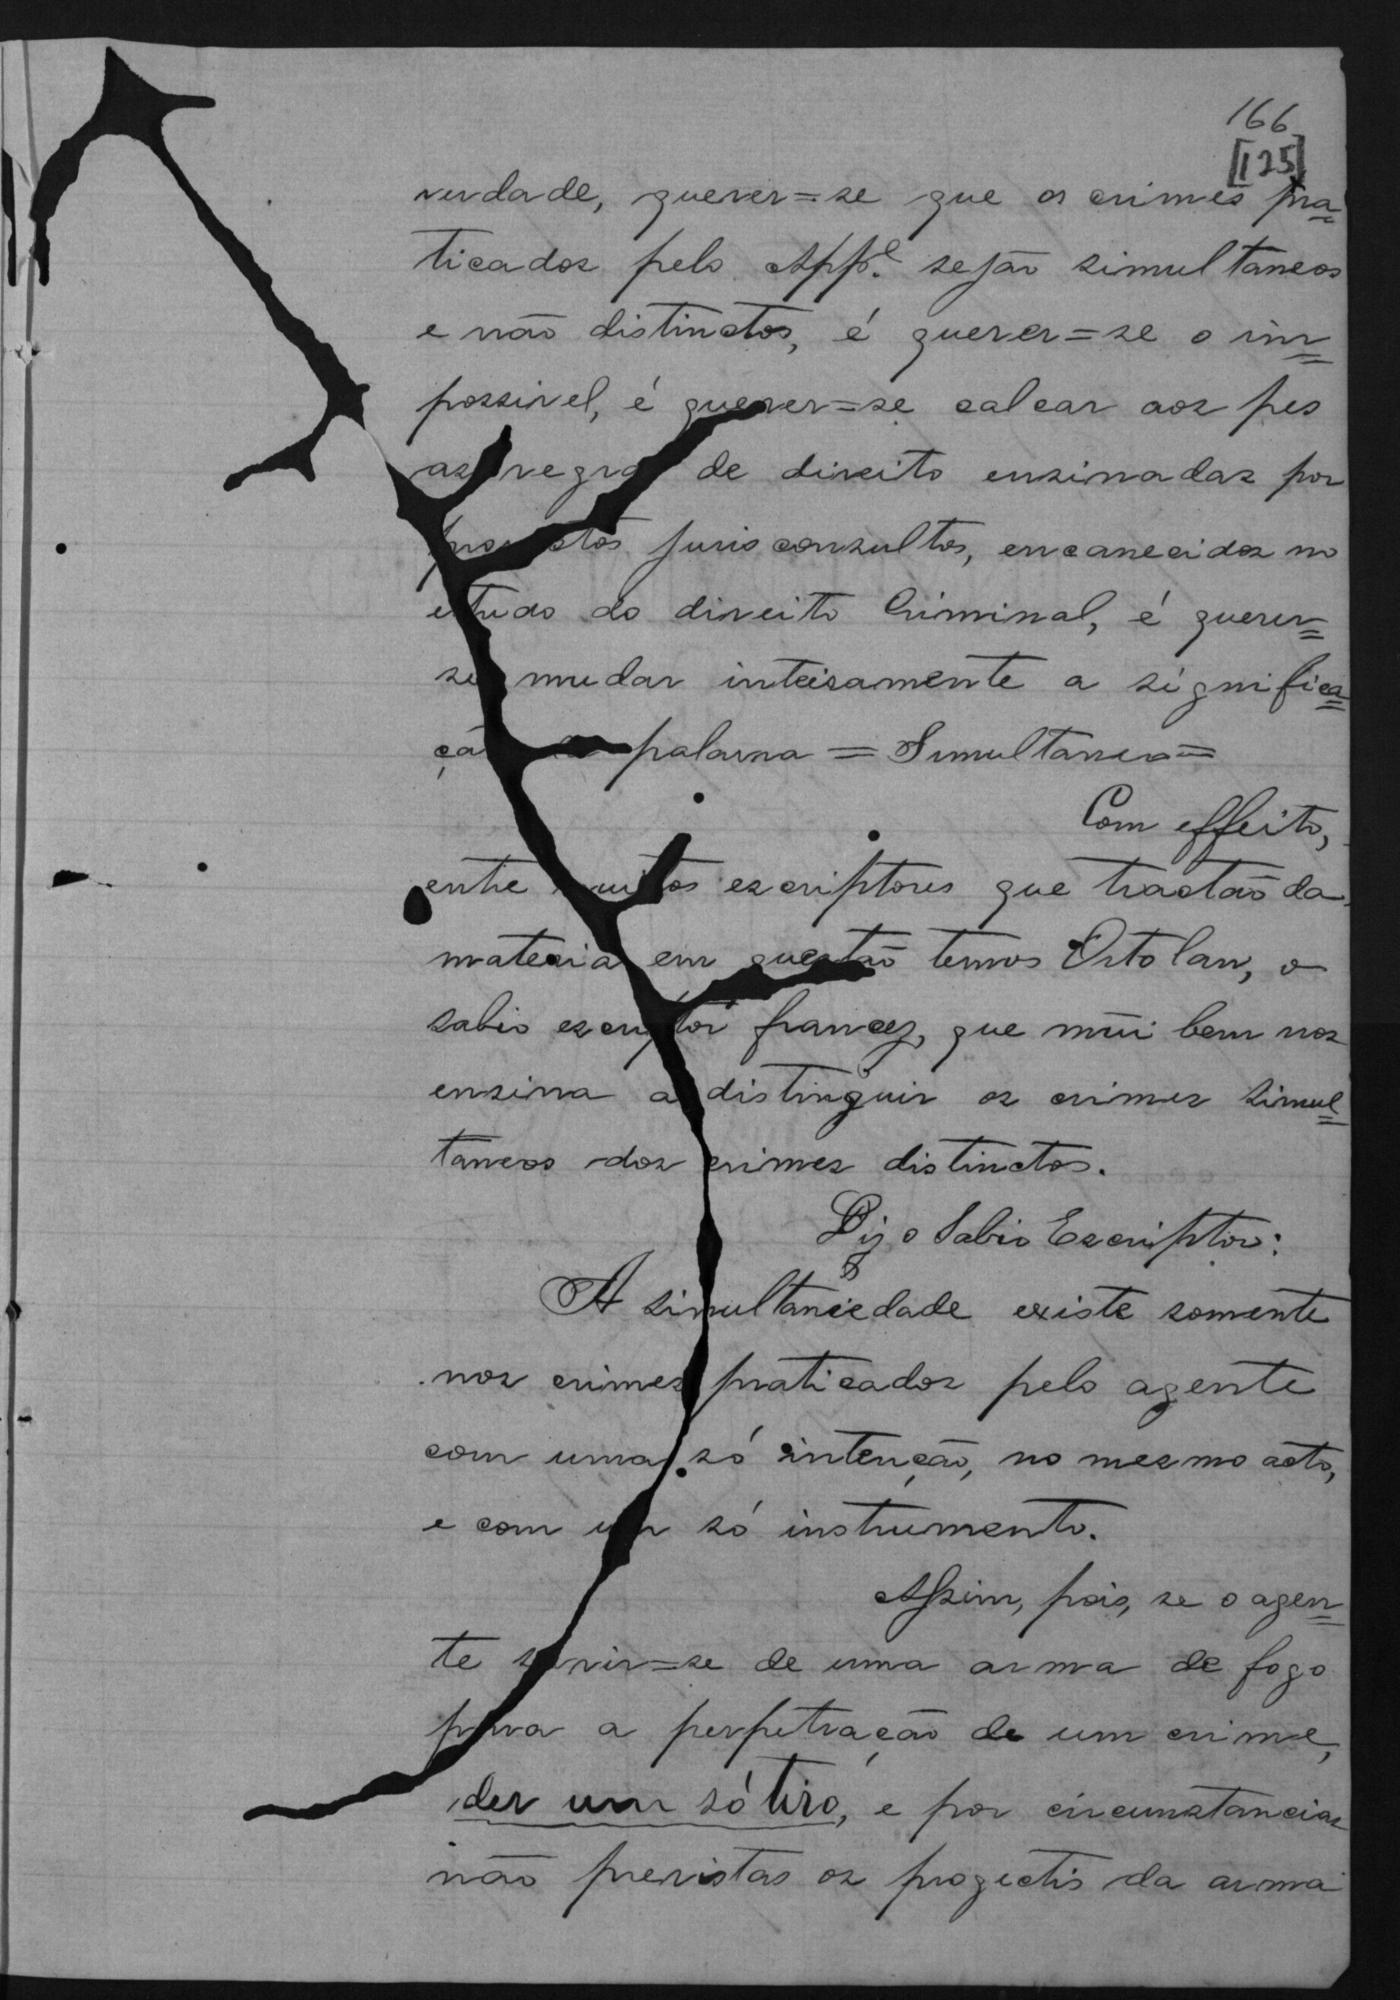 166
[125]
verdade, querer=se que os crimes pra=
ticados pelo App.e sejão simultaneos
e não distinctos, é querer=se o im=
possivel, é querer=se calcar aos pes
as regras de direito ensinadas por
juris consultos, encanecidos no
estudo do direito Criminal, é querer=
se mudar inteisamente a significa=
ção da palavra = Simultaneo =
Com effeito,
entre muitos escriptores que tractão da
materia em questão temos Ortolan, o
sabio escriptor francez, que mũi bem nos
ensina a distinguir os crimes simul=
taneos dos crimes distinctos.
Diz o Sabio Escriptor:
A simultaneidade existe somente
nos crimes praticados pelo agente
com uma só intenção, no mesmo acto,
e com um só instrumento.
Assim, pois, se o agen=
te servir=se de uma arma de fogo
para a perpetração de um crime,
der um só tiro, e por circunstancias
não previstas os progectis da arma